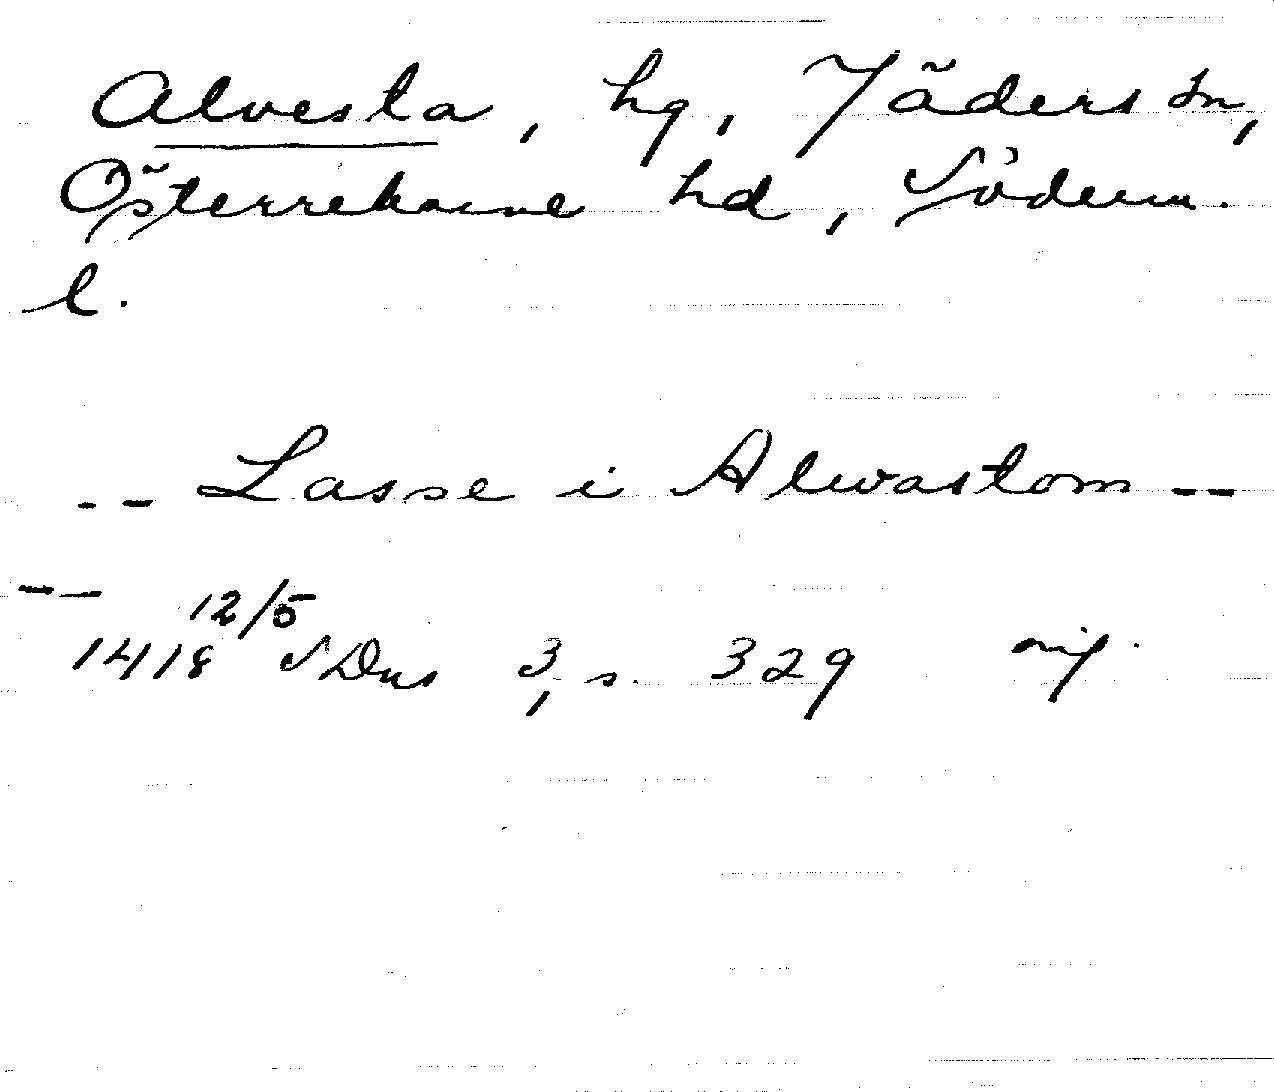 Alvesta, hg, Jäders sn,
Österrekarne hd, Söderm.
l.
-- Lasse i Alwastom --
-- 12/5
1418 SDns 3, s. 329 orig.